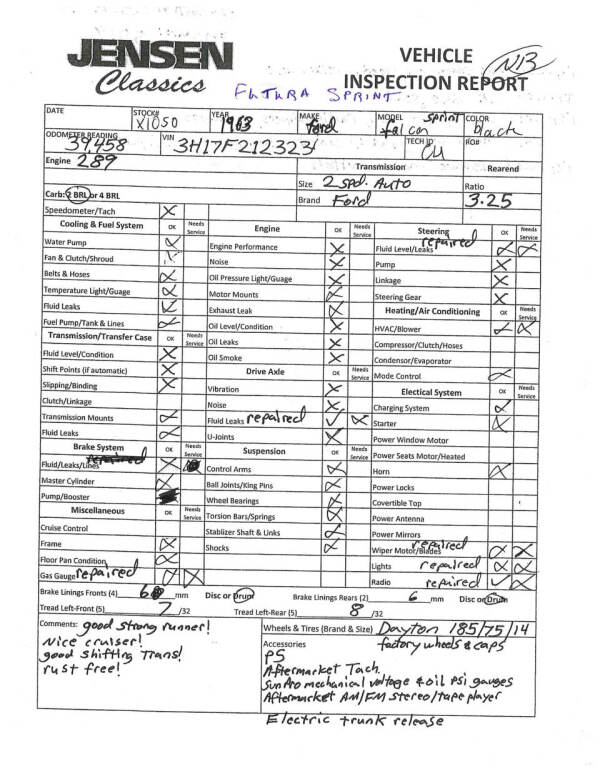 JENSEN
Classics
VEHICLE
INSPECTION REPORT
NB
FUTURA SPRINT
DATE STOCK# X1050 YEAR 1963 MAKE Ford MODEL Falcon Sprint COLOR black
ODOMETER READING 39,458 VIN 3H17F212323 TECH ID RO#
Engine 289 Transmission Rearend
Size 2 spd. Auto Ratio
Carb: 2 BRL or 4 BRL Brand Ford 3.25
Speedometer/Tach X
Cooling & Fuel System OK Needs Service Engine OK Needs Service Steering OK Needs Service
Water Pump X Engine Performance X Fluid Level/Leaks repaired X X
Fan & Clutch/Shroud X Noise X Pump X
Belts & Hoses X Oil Pressure Light/Guage X Linkage X
Temperature Light/Guage X Motor Mounts X Steering Gear X
Fluid Leaks X Exhaust Leak X Heating/Air Conditioning OK Needs Service
Fuel Pump/Tank & Lines X Oil Level/Condition X HVAC/Blower ✓ X
Transmission/Transfer Case OK Needs Service Oil Leaks X Compressor/Clutch/Hoses
Fluid Level/Condition X Oil Smoke X Condensor/Evaporator
Shift Points (if automatic) X Drive Axle OK Needs Service Mode Control X
Slipping/Binding X Vibration X Electical System OK Needs Service
Clutch/Linkage Noise X Charging System X
Transmission Mounts X Fluid Leaks repaired ✓ X Starter X
Fluid Leaks X U-Joints X Power Window Motor
Brake System OK Needs Service Suspension OK Needs Service Power Seats Motor/Heated
Fluid/Leaks/Lines repaired X Control Arms X Horn X
Master Cylinder X Ball Joints/King Pins X Power Locks
Pump/Booster Wheel Bearings X Covertible Top
Miscellaneous OK Needs Service Torsion Bars/Springs X Power Antenna
Cruise Control Stablizer Shaft & Links X Power Mirrors
Frame X Shocks X Wiper Motor/Blades repaired X X
Floor Pan Condition X Lights repaired X X
Gas Gauge repaired X X Radio repaired ✓ X
Brake Linings Fronts (4) 6 mm Disc or Drum Brake Linings Rears (2) 6 mm Disc or Drum
Tread Left-Front (5) 7 /32 Tread Left-Rear (5) 8 /32
Comments: good strong runner!
Nice cruiser!
good shifting Trans!
rust free!
Wheels & Tires (Brand & Size) Dayton 185/75/14
Accessories factory wheels & caps
PS
Aftermarket Tach.
SunPro mechanical voltage & oil psi gauges
Aftermarket AM/FM stereo/tape player
Electric trunk release